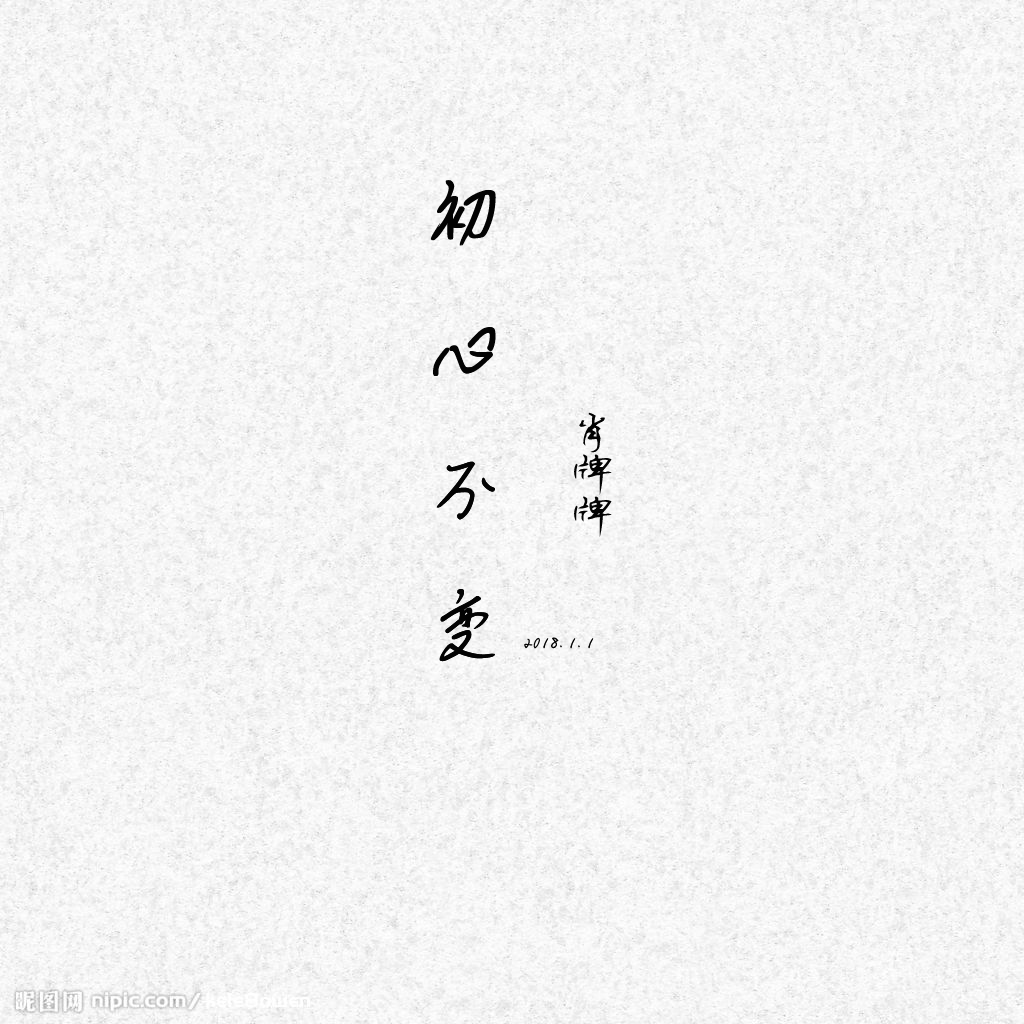 初心不变
肖牌牌
2018.1.1
昵图网 nipic.com/